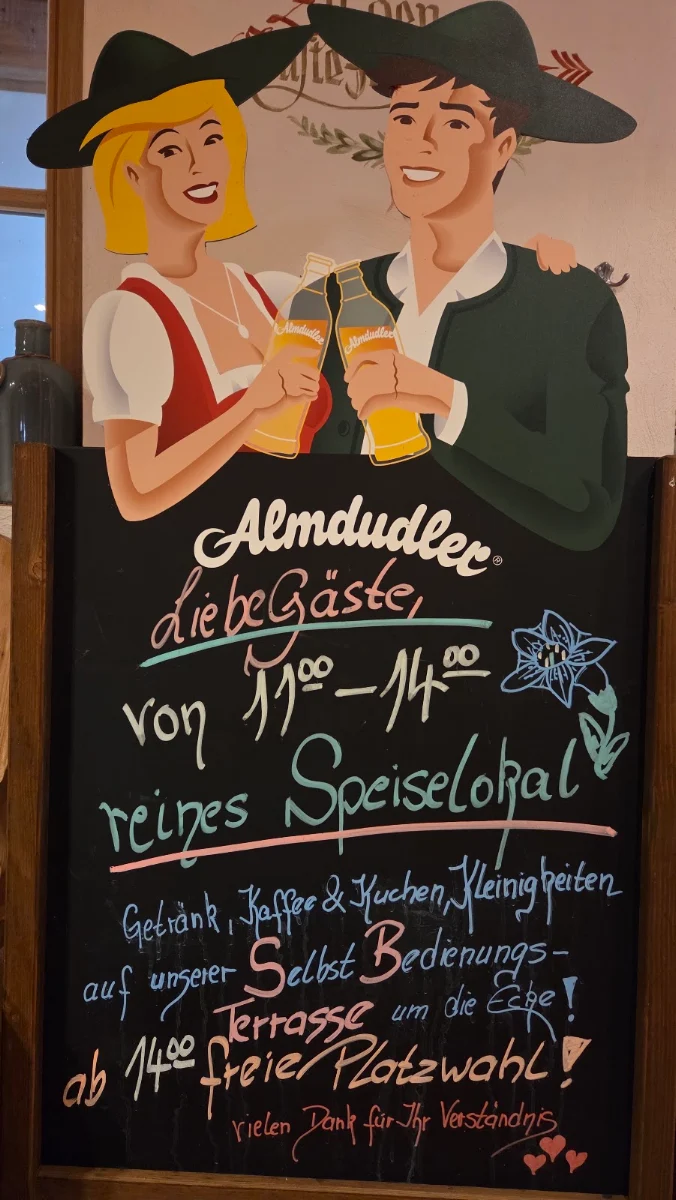 Almdudler
Almdudler
Almdudler®
Liebe Gäste,
von 11⁰⁰ – 14⁰⁰
reines Speiselokal
Getränk, Kaffee & Kuchen, Kleinigkeiten
auf unserer Selbst Bedienungs-
Terrasse um die Ecke!
ab 14⁰⁰ freie Platzwahl!
vielen Dank für Ihr Verständnis